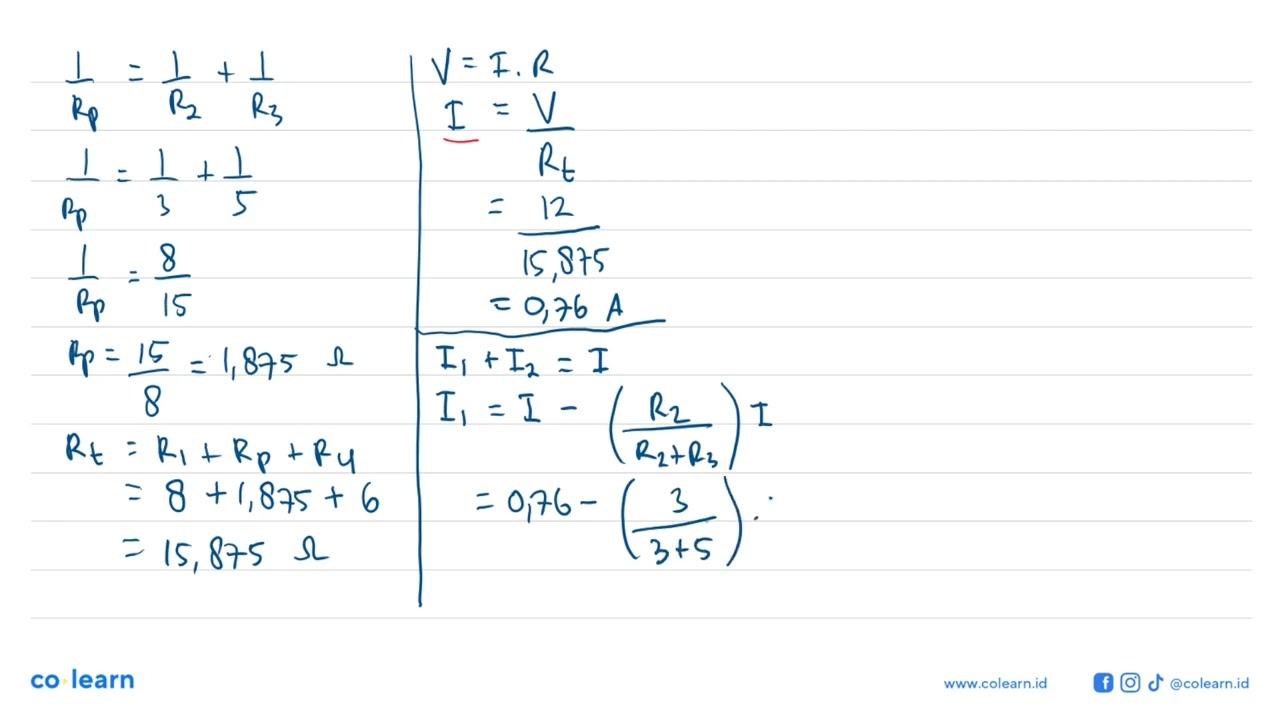 1/Rp = 1/R2 + 1/R3
1/Rp = 1/3 + 1/5
1/Rp = 8/15
Rp = 15/8 = 1,875 Ω
Rt = R1 + Rp + R4
= 8 + 1,875 + 6
= 15,875 Ω
V = I . R
I = V/Rt
= 12/15,875
= 0,76 A
I1 + I2 = I
I1 = I - (R2/(R2+R3)) I
= 0,76 - (3/(3+5)) .
co learn
www.colearn.id
@colearn.id